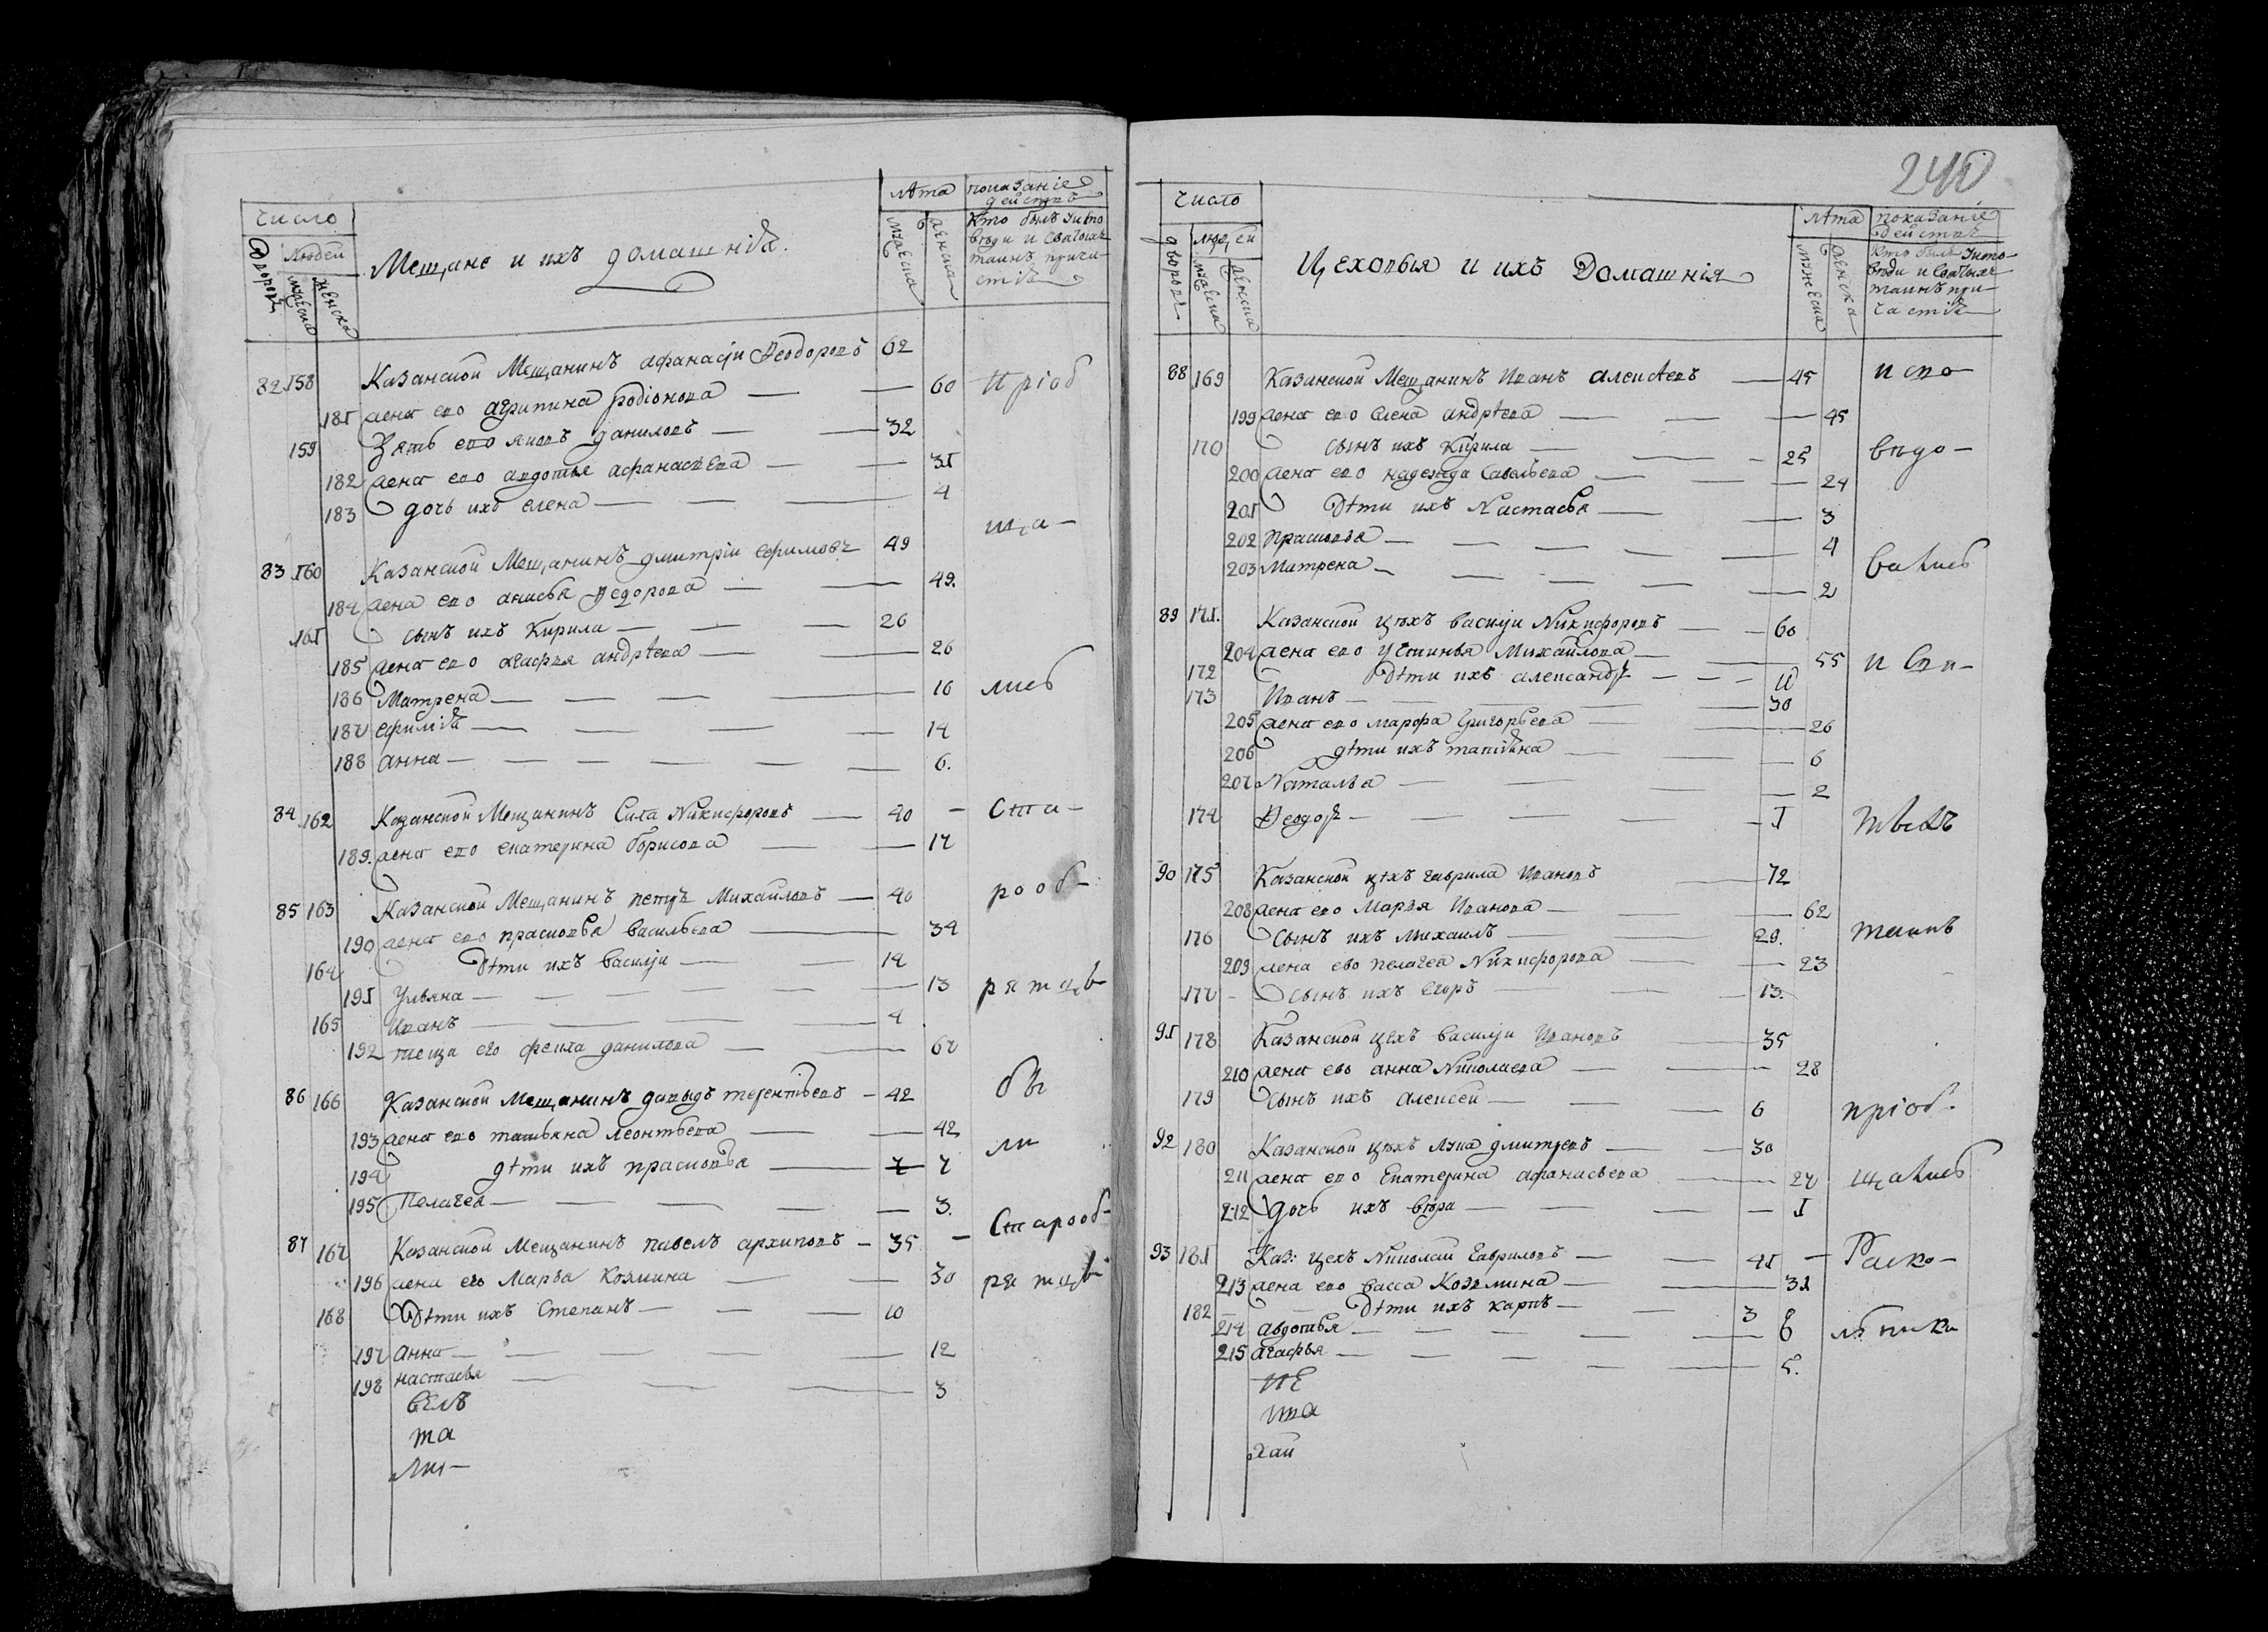 число
Дворовъ
людей
мужеска
женска
Мещане и ихъ домашнія.
лѣта
мужеска
женска
показаніе действъ
Кто былъ уиспо
вѣди и святыхъ
таинъ прича
стія
82 158 Казанской Мещанинъ афанасіи Ѳеодоровъ 62
181 жена ево агрипина родіонова — — 60 Пріоб
159 Зять ево яковъ даниловъ — — 32
182 жена ево авдотья афанасѣева — — 31
183 дочь ихъ елена — — — 4
ща —
83 160 Казанской Мещанинъ дмитріи ефимовъ 49
184 жена ево анисья Ѳедорова — — 49.
161 сынъ ихъ Кирила — — — 26
185 жена ево агафья андрѣева — — 26
186 Матрена — — — — 16 лись
187 ефимія — — — — 14
188 анна — — — — — — 6.
84 162 Казанской Мещанинъ Сила Никифоровъ — 40 — Ста —
189. жена ево екатерина борисова — — 17
85 163 Казанской Мещанинъ петръ Михаиловъ — 40 рооб —
190 жена ево прасковья васильева — 34
164 Дѣти ихъ василіи — — 14
191 Ульяна — — — — — 13 рятцы
165 Иванъ — — — 4
192 теща его фекла данилова — — 67
86 166 Казанской Мещанинъ давыдъ терентьевъ — 42 бы
193 жена ево татьяна леонтьева — — 42 ли
194 дѣти ихъ прасковья — 7 7
195 Пелагея — — — — — 3.
87 167 Казанской Мещанинъ павелъ архиповъ — 35 — Старооб —
196 жена его Марья Козмина — — 30 рятцы
168 Дѣти ихъ Степанъ — — — 10
197 Анна — — — — — 12
198 настасья — — — 3
велъ
та
Ли —
240
число
дворовъ
людеи
мужеска
женска
Цеховыя и ихъ Домашнія
лѣта
мужеска
женска
показаніе действъ
Кто былъ уиспо —
вѣди и святыхъ
таинъ при —
частія
88 169 Казанской Мещанинъ Иванъ алексѣевъ — 45 испо
199 жена ево елена андрѣева — — — 45
170 сынъ ихъ Кирила — — 25 вѣдо —
200 жена ево надежда савельева — — — 24
201 Дѣти ихъ Настасья — — 3
202 Прасковья — — — — — 4
203 Матрена — — — — — 2 вались
89 171. Казанской цѣхъ василіи Никифоровъ — — 60
204 жена ево устинья Михайлова — — 55 и Свя —
172 Дѣти ихъ александръ — — — 11
173 Иванъ — — — — 30
205 жена ево марфа григорьева — — 26
206 дѣти ихъ татіяна — — — 6
207 Наталья — — — — 2
174 Ѳеодоръ — — — — — 1 тыхъ
90 175 Казанской цѣхъ гаврила Ивановъ — 72
208 жена ево Марья Иванова — — — 62
176 Сынъ ихъ михаилъ — — 29. таинъ
209 жена ево пелагея Никифорова — — 23
177 — сынъ ихъ егоръ — — — 13.
91 178 Казанской цѣхъ василіи Ивановъ — 35
210 жена ево анна Николаева — — — 28
179 Сынъ ихъ алексей — — — 6 пріоб.
92 180 Казанской цѣхъ лука дмитревъ — — 30
211 жена ево Екатерина афанасьева — — 27 щались
212 дочь ихъ вѣра — — — — 1
93 181 Каз: цехъ Николай Гавриловъ — — 41 — Раско —
213 жена ево васса Козмина — — 31
182 — — Дѣти ихъ карпъ — — 3
214 авдотья — — — — — 8 льники
215 агафья — — — — — 5.
не
ита
хаи